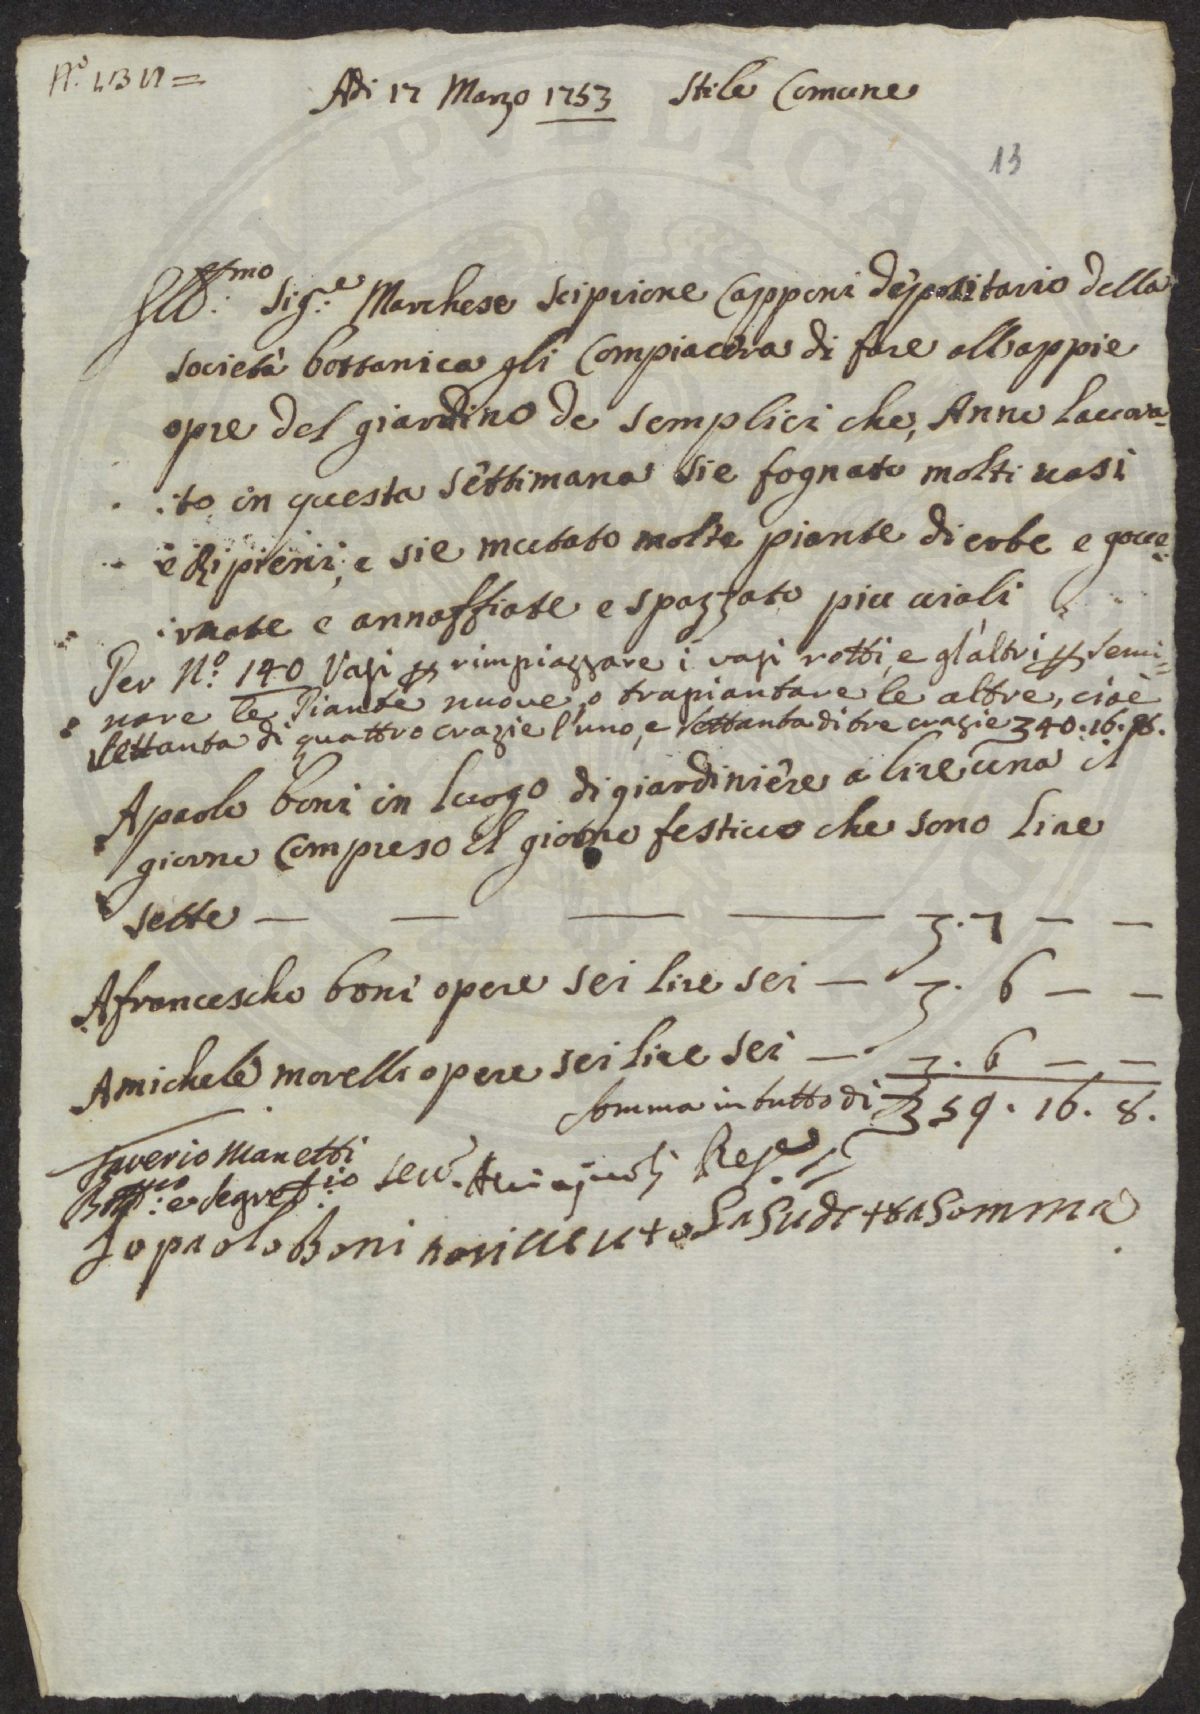 Adi 17 Marzo 1753 Stile Comune
13
Ill:mo Sig:e Marchese Scipione Capponi depositario della
società bottanica gli Compiacera di fare all appie
opre del giardino de semplici che, Anno lauora
:to in questa settimana sie fognato molti uasi
e Ripieni, e sie mutato molte piante di erbe e gouer
:nate e annaffiate e spazzato piu uiali
Per N:o 140 Vasi p rimpiazzare i vasi rotti, e gl'altri p semi=
nare le Piante nuove, o trapiantare le altre, cioè
settanta di quattro crazie l'uno, e settanta di tre crazie 340.16.8.
A paolo boni in luogo di giardiniere a lire una il
giorno Compreso il giorno festiuo che sono lire
sette — — — — 3. 7 — —
A francescho boni opere sei lire sei — 3. 6 — —
A michele morelli opere sei lire sei — 3. 6 — —
Somma in tutto di 359. 16. 8.
Saverio Manetti
Bott:co e Segret:io
Io paolo Boni o riceuuto la sudetta somma